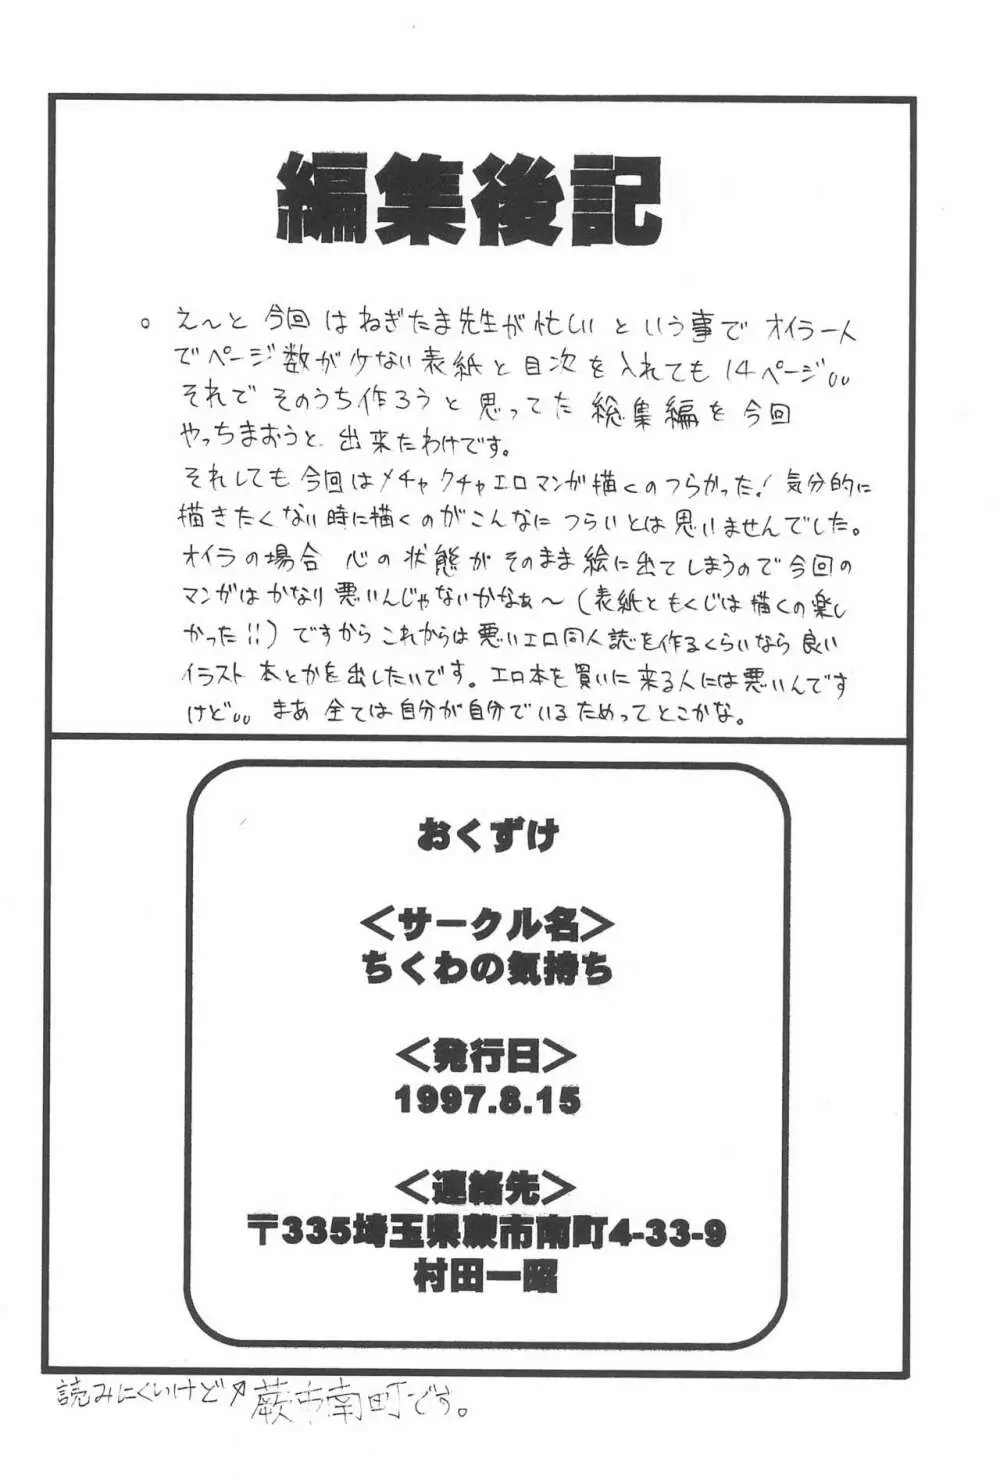 編集後記
。え〜と 今回はねぎたま先生が忙しいという事でオイラ一人
でページ数が少ない表紙と目次を入れても14ページ。。
それでそのうち作ろうと思ってた総集編を今回
やっちまおうと、出来たわけです。
それしても今回はメチャクチャエロマンガ描くのつらかった!気分的に
描きたくない時に描くのがこんなにつらいとは思いませんでした。
オイラの場合 心の状態がそのまま絵に出てしまうので今回の
マンガはかなり悪いんじゃないかなぁ〜(表紙ともくじは描くの楽し
かった!!)ですからこれからは悪いエロ同人誌を作るくらいなら良い
イラスト本とかを出したいです。エロ本を買いに来る人には悪いんです
けど。。まあ全ては自分が自分でいるためってとこかな。
おくずけ
<サークル名>
ちくわの気持ち
<発行日>
1997.8.15
<連絡先>
〒335埼玉県蕨市南町4-33-9
村田一昭
読みにくいけど↗蕨市南町です。